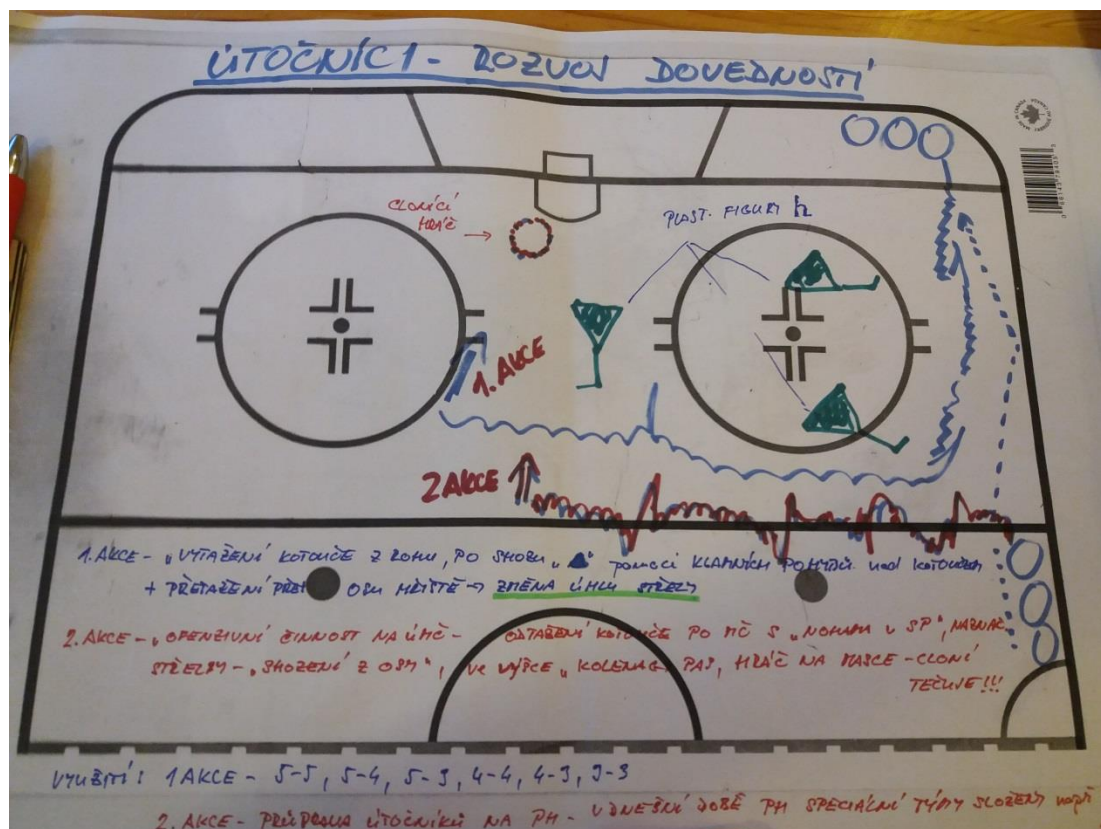 ÚTOČNÍCI - ROZVOJ DOVEDNOSTÍ
MADE IN CANADA
CLONÍCÍ
HRÁČ
PLAST. FIGURY
1. AKCE
2 AKCE
1. AKCE - „VYTAŽENÍ KOTOUČE Z ROHU, PO SHOZU „ " pomocí KLAMNÝCH POHYBŮ nad KOTOUČEM
+ PŘETAŽENÍ PŘES OSU HŘIŠTĚ → ZMĚNA ÚHLU STŘELY
2. AKCE - „OFENZIVNÍ ČINNOST NA ÚMČ - ODTAŽENÍ KOTOUČE PO MČ S „NOHAMA V SP",
STŘELBY - „SHOZENÍ Z OSY", ve VÝŠCE „KOLENA PAS, HRÁČ NA MASCE - CLONÍ
TEČUJE!!!
VYUŽITÍ: 1AKCE - 5-5, 5-4, 5-3, 4-4, 4-3, 3-3
2. AKCE - PŘÍPRAVA ÚTOČNÍKŮ NA PH - V DNEŠNÍ DOBĚ PH SPECIÁLNÍ TÝMY SLOŽENY např